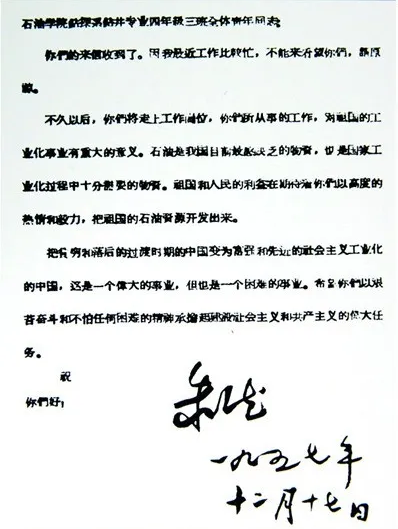 石油学院钻探系钻井专业四年级三班全体青年同志:
你們的来信收到了。因我最近工作比較忙，不能来看望你們，請原
諒。
不久以后，你們将走上工作崗位，你們所从事的工作，对祖国的工
业化事业有重大的意义。石油是我国目前最感缺乏的物資，也是国家工
业化过程中十分要的物資。祖国和人民的利益在期待着你們以高度的
热情和毅力，把祖国的石油資源开发出来。
把貧穷和落后的过渡时期的中国变为富强和先进的社会主义工业化
的中国，这是一个偉大的事业，但也是一个困难的事业。希望你們以艰
苦奋斗和不怕任何困难的精神承担起建設社会主义和共产主义的偉大任
务。
祝
你們好！
朱德
一九五七年
十二月十七日